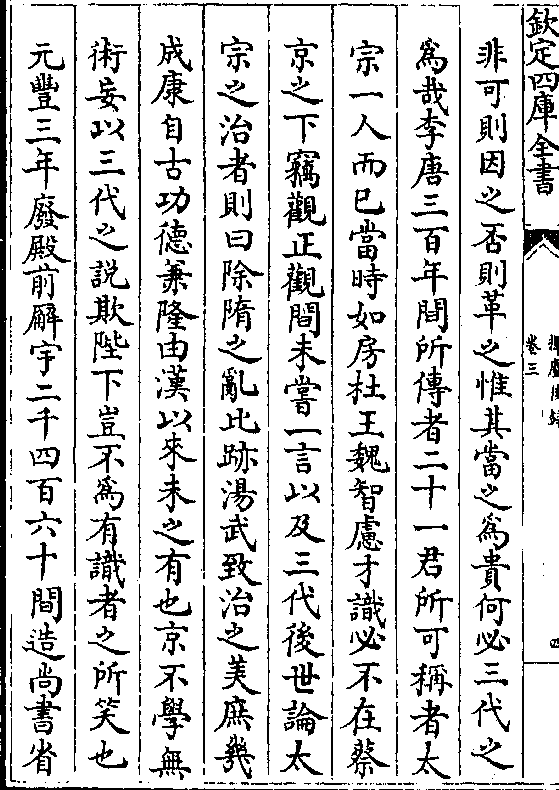 欽定四庫全書
卷三
四
非可則因之否則革之惟其當之為貴何必三代之
為哉李唐三百年間所傳者二十一君所可稱者太
宗一人而已當時如房杜王魏智慮才識必不在蔡
京之下竊觀正觀間未嘗一言以及三代後世論太
宗之治者則曰除隋之亂比跡湯武致治之美庶幾
成康自古功德兼隆由漢以來未之有也京不學無
術妄以三代之說欺陛下豈不為有識者之所笑也
元豐三年廢殿前廨宇二千四百六十間造尚書省